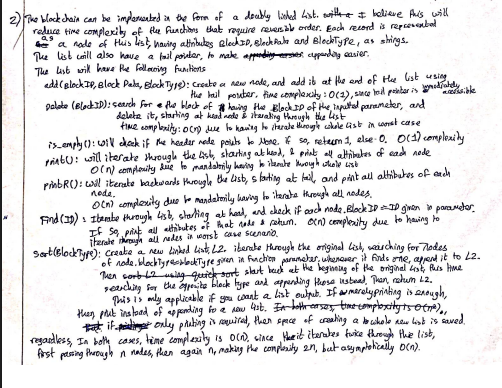 2) The blockchain can be implemented in the form of a doubly linked list. I believe this will
reduce time complexity of the functions that require reversible order. Each record is represented
as a node of this list, having attributes BlockID, BlockData and BlockType, as strings.
The list will also have a tail pointer, to make appending easier.
The list will have the following functions
add(BlockID, Block Data, BlockType): create a new node, and add it at the end of the list using
the tail pointer, time complexity: O(1), since tail pointer is immediately accessible.
delete (BlockID): search for the block of having the BlockID of the inputted parameter, and
delete it, starting at head node & iterating through the list
time complexity: O(n) due to having to iterate through whole list in worst case
is_empty(): will check if the header node points to None. if so, return 1, else 0. O(1) complexity
print(): will iterate through the list, starting at head, & print all attributes of each node
O(n) complexity due to mandatorily having to iterate through whole list
printR(): will iterate backwards through the list, starting at tail, and print all attributes of each
node.
O(n) complexity due to mandatorily having to iterate through all nodes.
Find(ID): iterate through list, starting at head, and check if each node.BlockID == ID given in parameter.
If so, print all attributes of that node & return. O(n) complexity due to having to
iterate through all nodes in worst case scenario.
Sort(BlockType): create a new linked list, L2. iterate through the original list, searching for nodes
of node.blocktype=blockType given in function parameter. whenever it finds one, append it to L2.
Then start back at the beginning of the original list, this time
searching for the opposite block type and appending those instead. Then, return L2.
This is only applicable if you want a list output. If merely printing is enough,
then print instead of appending to a new list. In both cases, time complexity is O(n).
if only printing is required, then space of creating a whole new list is saved.
regardless, In both cases, time complexity is O(n), since it iterates twice through the list,
first passing through n nodes, then again n, making the complexity 2n, but asymptotically O(n).